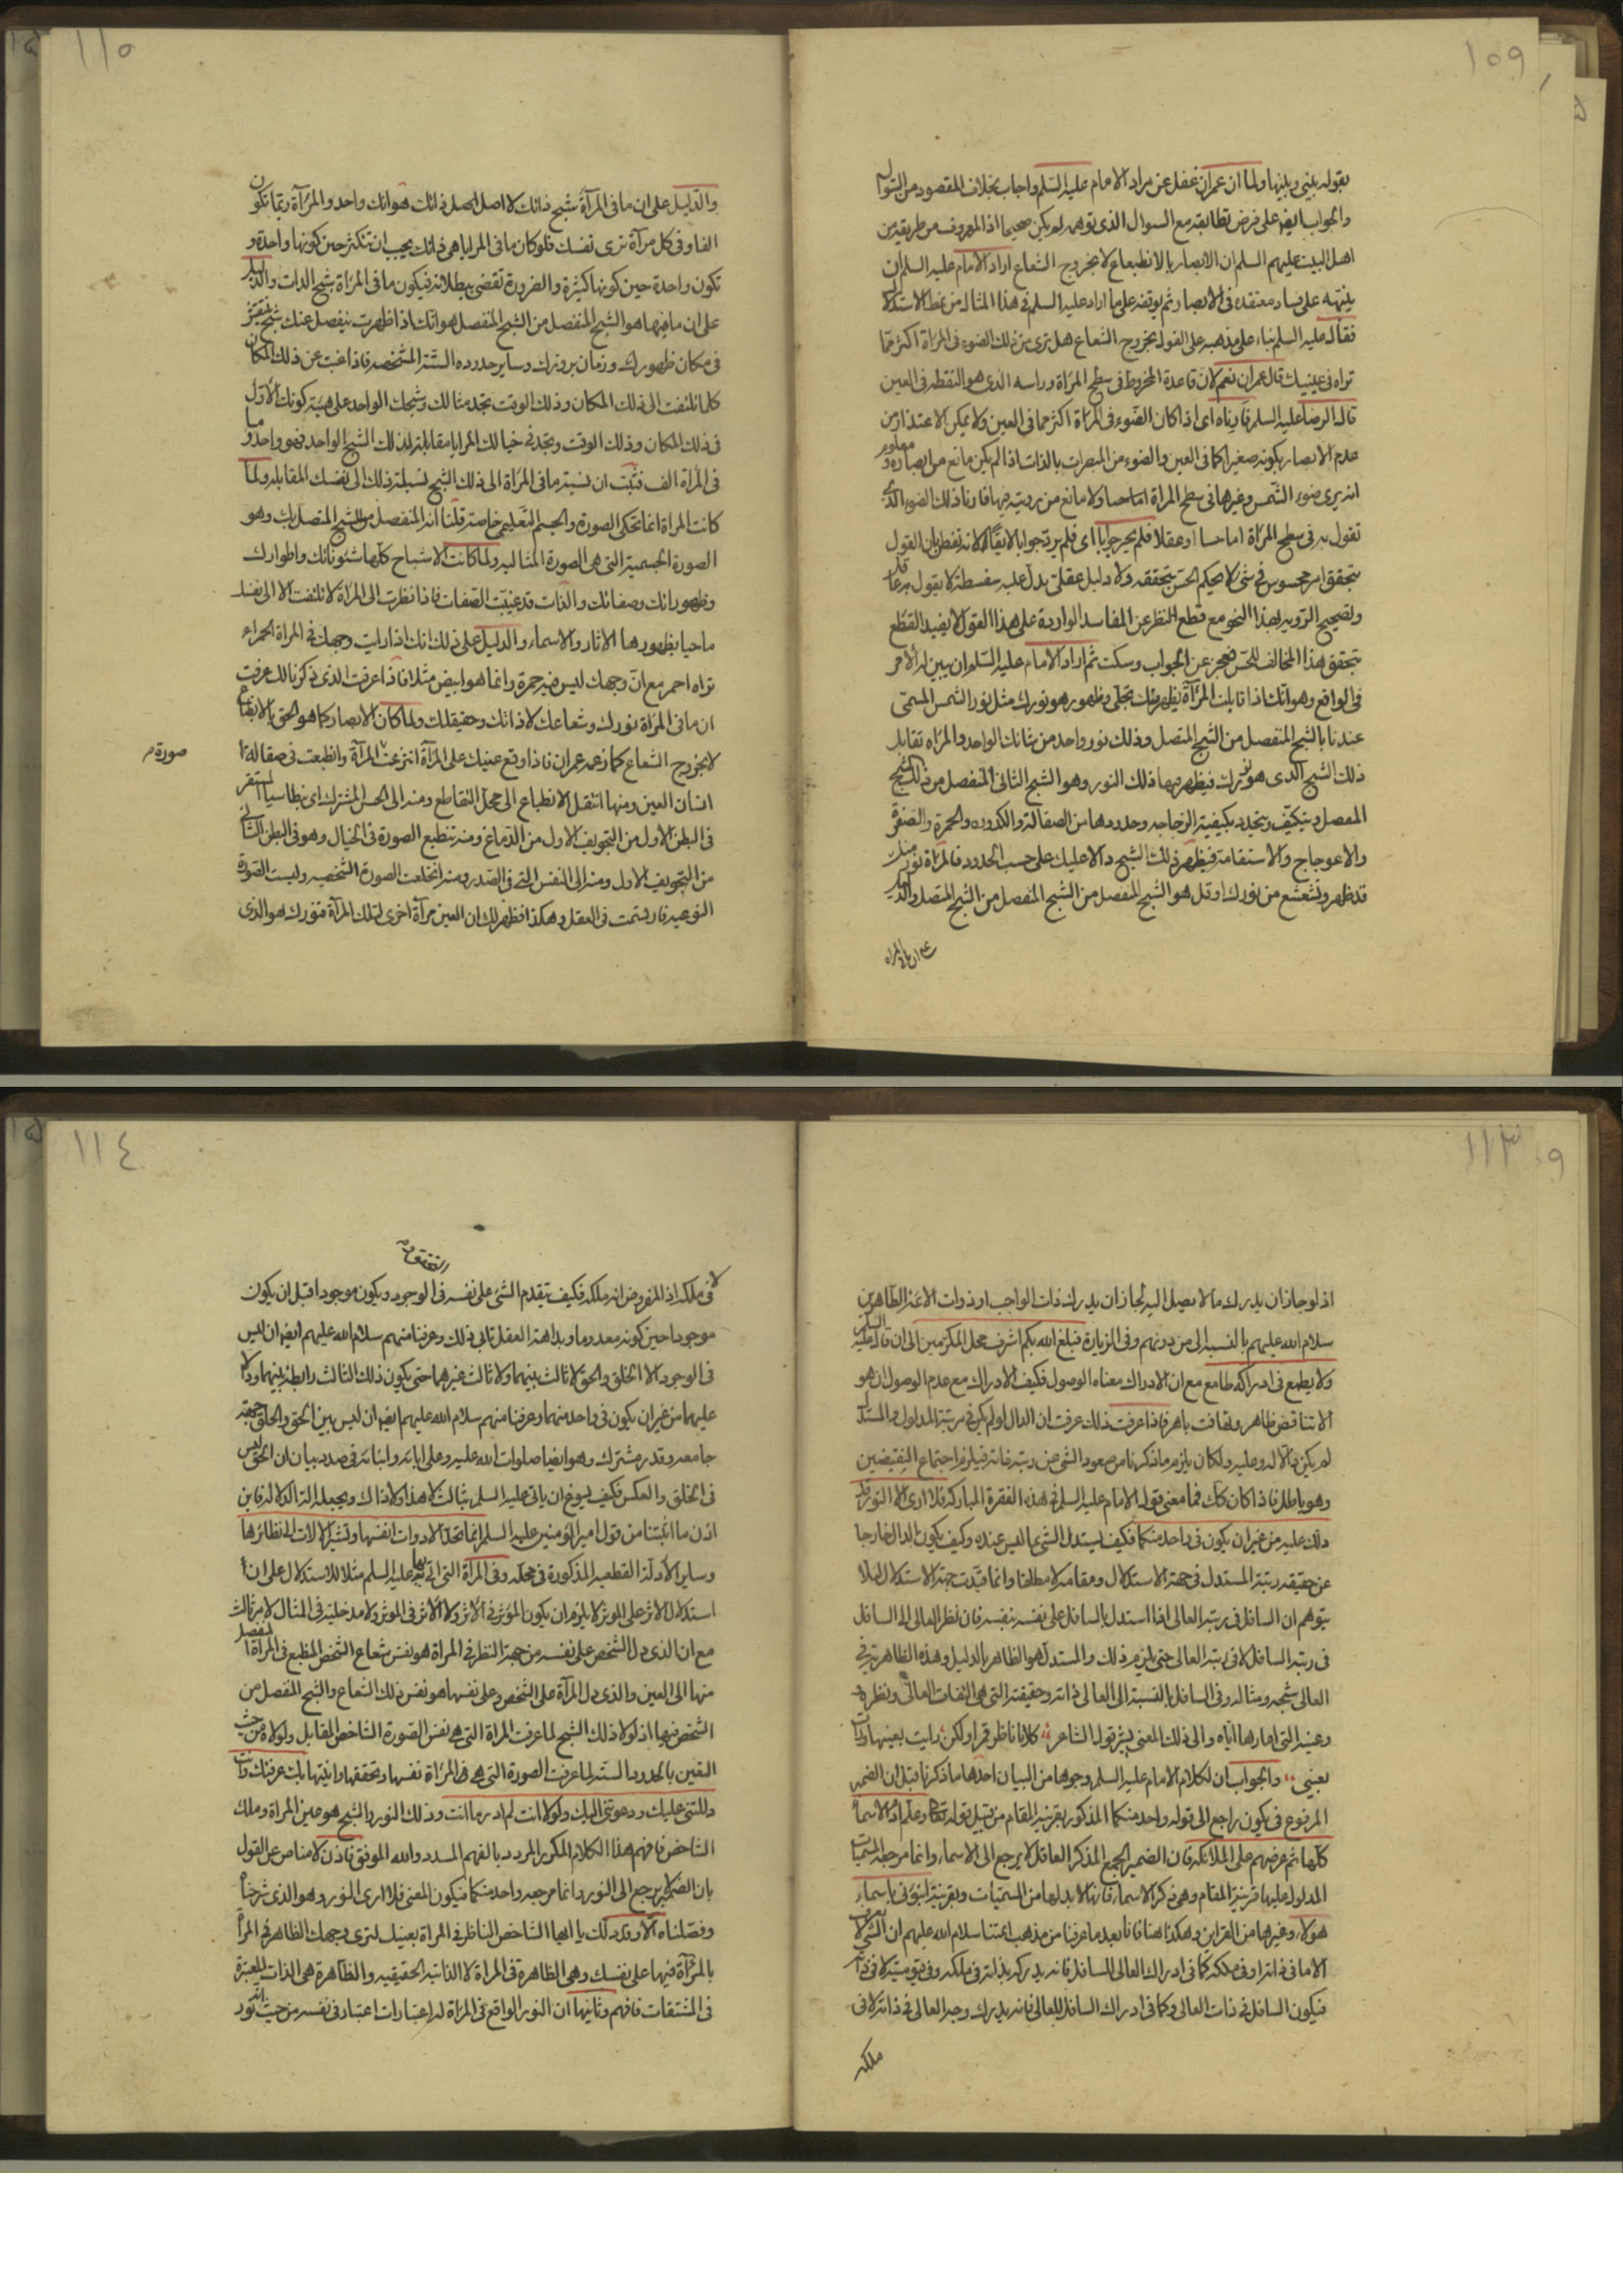 ١٥٩
بقوله بليني ويليها ولما ان عمران غفل عن مراد الامام عليه السلم واجاب بخلاف المقصود من السؤال
والجواب ايضا على فرض تطابقه مع السؤال الذى توهمه لم يكن صحيحا اذ المعروف من طريقة من
اهل البيت عليهم السلم ان الابصار بالانطباع لا بخروج الشعاع اراد الامام عليه السلم ان
ينبهه على فساد معتقده فى الابصار ثم يوقفه على ما اراد عليه السلم فى هذا المثال من نمط الاستدلال
فقال عليه السلم بناء على مذهبه على القول بخروج الشعاع هل ترى من ذلك الضوء فى المرآة اكثر مما
تراه فى عينيك قال عمران نعم لان قاعدة المخروط فى سطح المرآة وراسه الذى هو النقطة فى العين
قال الرضا عليه السلم فارناه اى اذا كان الضوء فى المرآة اكثر مما فى العين ولا يمكن الاعتذار من
عدم الابصار بكونه صغيرا كما فى العين والضوء من المبصرات بالذات اذا لم يكن مانع من ابصاره ومعلوم
انه يرى ضوء الشمس وغيرها فى سطح المرآة اما حسا ولا مانع من رؤيته فيها فارنا ذلك الضوء الذى
تقول به فى سطح المرآة اما حسا او عقلا فلم يحر جوابا اى فلم يرد جوابا لانه تفطن بان القول
بتحقق امر محسوس فى شئ لا يحكم الحس بتحققه ولا دليل عقلى يدل عليه سفسطة لا يقول به عاقل
وتصحيح الرؤية بهذا النحو مع قطع النظر عن المفاسد الواردة على هذا القول لا يفيد القطع
بتحقق هذا المخالف للحس فعجز عن الجواب وسكت ثم اراد الامام عليه السلم ان يبين له الامر
فى الواقع وهو انك اذا قابلت المرآة يظهر منك تجلى وظهور هو نورك مثل نور الشمس المسمى
عندنا بالشبح المنفصل من الشبح المتصل وذلك نور واحد من شانك الواحد والمرآة تقابل
ذلك الشبح الذى هو نورك فيظهر بها ذلك النور وهو الشبح الثانى المنفصل من ذلك الشبح
المفصل ويتكيف ويتحدد بكيفية الزجاجه وحدودها من الصقالة والكدورة والحمرة والصفرة
والاعوجاج والاستقامة فيظهر ذلك الشبح دالا عليك على حسب الحدود فالمرآة نور منك
قد ظهر وتشعشع من نورك او قل هو الشبح المنفصل من الشبح المنفصل من الشبح المتصل والدليل
على ان ما فى المرآة
١١٠
والدليل على ان ما فى المرآة شبح ذاتك لا اصل ذاتك هو انك واحد والمرآة ربما تكون
الفا وفى كل مرآة ترى نفسك فلو كان ما فى المرايا هى ذاتك يجب ان تتكثر حين كونها واحدة و
تكون واحدة حين كونها كثيرة والضرورة تقضى ببطلانه فيكون ما فى المرآة شبح الذات والدليل
على ان ما فيها هو الشبح المنفصل من الشبح المنفصل هو انك اذا ظهرت ينفصل عنك شبح
فى مكان ظهورك وزمان بروزك وساير حدوده الستة المشخصه فاذا غبت عن ذلك المكان
كلما تلتفت الى ذلك المكان وذلك الوقت تجد مثالك وشبحك الواحد على هيئة كونك الاول
فى ذلك المكان وذلك الوقت وتجد فى خيالك المرايا مقابلة لذلك الشبح الواحد فهو واحد وما
فى المرآة الف فثبت ان نسبة ما فى المرآة الى ذلك الشبح نسبة ذلك الى نفسك المقابله ولما
كانت المرآة انما تحكى الصورة والجسم التعليمى خاصة قلنا انه المنفصل من الشبح المتصل بك وهو
الصورة الجسمية التى هى الصورة المثالية ولما كانت الاشباح كلها شئوناتك واطوارك
وظهوراتك وصفاتك والذات قد غيبت الصفات فاذا نظرت الى المرآة لا تلتفت الا الى نفسك
ماحيا بظهورها الاثار والاسماء والدليل على ذلك انك اذا رايت وجهك فى المرآة الحمراء
تراه احمر مع ان وجهك ليس فيه حمرة وانما هو ابيض مثلا فاذا عرفت الذى ذكرنا لك عرفت
ان ما فى المرآة نورك وشعاعك لا ذاتك وحقيقتك ولما كان الابصار كما هو الحق بالانطباع
لا بخروج الشعاع كما زعمه عمران فاذا وقع عينيك على المرآة انتزعت المرآة وانطبعت فى صقالة
صورة
انسان العين ومنها انتقل الانطباع الى محل التقاطع ومنه الى الحس المشترك اى بنطاسيا
فى البطن الاول من التجويف الاول من الدماغ ومنه تنطبع الصورة فى الخيال وهو فى البطن الثانى
من التجويف الاول ومنه الى النفس التى فى الصدر ومنه انخلعت الصورة الشخصيه ولبست الصورة
النوعيه فارتسمت فى العقل وهكذا فظهر لك ان العين مرآة اخرى لتلك المرآة فنورك هو الذى
١١٣
اذ لو جاز ان يدرك ما لا يصل اليه لجاز ان يدرك ذات الواجب او ذوات الائمة الطاهرين
سلام الله عليهم بالنسبة الى من دونهم وفى الزيارة فبلغ الله بكم اشرف محل المكرمين الى ان قال عليه السلم
ولا يطمع فى ادراكه طامع مع ان الادراك معناه الوصول فكيف الادراك مع عدم الوصول ان هو
الا تناقض ظاهر وتهافت باهر فاذا عرفت ذلك عرفت ان الدال لو لم يكن فى رتبة المدلول والمستدل
لم يكن دالا له وعليه ولكان يلزم ما ذكرنا من صعود الشئ عن رتبة ذاته فيلزم اجتماع النقيضين
وهو باطل فاذا كان كك فما معنى قول الامام عليه السلم فى هذه الفقرة المباركة فلا ارى الا النور قد
دلك عليه من غير ان يكون فى واحد منكما فكيف يستدل الشئ بما ليس عنده وكيف يكون الدال خارجا
عن حقيقة رتبة المستدل فى جهة الاستدلال ومقامه لا مطلقا وانما قيدت جهة الاستدلال لئلا
يتوهم ان السافل فى رتبة العالى اذا استدل بالسافل على نفسه بنفسه فان نظر العالى الى السافل
فى رتبة السافل لا فى رتبة العالى حتى يلزم ذلك والمستدل هو الظاهر بالدليل وهذه الظاهرية فى
العالى شبحه ومثاله وفى السافل بالنسبة الى العالى ذاته وحقيقته التى هى التفات العالى ونظره
وعينه التى اعارها اياه والى ذلك المعنى يشير قول الشاعر كلانا ناظر قمرا ولكن رايت بعينها ورات
بعينى والجواب ان لكلام الامام عليه السلم وجوها من البيان احدها ما ذكرنا قبل ان الضمير
المرفوع فى يكون راجع الى قوله واحد منكما المذكور بقرينة المقام من قبيل قوله تعالى وعلم آدم الاسماء
كلها ثم عرضهم على الملائكة فان الضمير الجمع المذكر العاقل لا يرجع الى الاسماء وانما مرجعه المسميات
المدلول عليها قرينة المقام وهى ذكر الاسماء فانها لا بد لها من المسميات وبقرينة انبؤنى باسماء
هؤلاء وغيرها من القراين وهكذا هنا فانا بعد ما عرفنا من مذهب ائمتنا سلام الله عليهم ان الشئ لا يعرف
الا ما فى ذاته او فى ملكه كما فى ادراك العالى للسافل فانه يدركه بذاته فى ملكه وفى قيوميته لا فى ذاته
فيكون السافل فى ذات العالى وكما فى ادراك السافل للعالى فانه يدرك وجه العالى فى ذاته لا فى
ملكه
١١٤
لا فى ملكه اذ المفروض انه ملكه فكيف يتقدم الشئ على نفسه فى الوجود ويكون موجودا قبل ان يكون
موجودا حين كونه معدوما وبداهة العقل تابى ذلك وعرفنا منهم سلام الله عليهم ايضا ان ليس
فى الوجود الا الخلق والحق لا ثالث بينهما ولا ثالث غيرهما حتى يكون ذلك الثالث رابطة بينهما ودالا
عليهما من غير ان يكون فى واحد منهما وعرفنا منهم سلام الله عليهم ايضا ان ليس بين الحق والخلق جهة
جامعه وقدر مشترك وهو ايضا صلوات الله عليه وعلى ابائه وابنائه فى صدد بيان ان الحق ليس
فى الخلق والعكس فكيف يسوغ ان ياتى عليه السلم بثالث لا هذا ولا ذاك ويجعله الة الدلاله فاين
اذن ما اثبتنا من قول امير المؤمنين عليه السلم انما تحد الادوات انفسها وتشير الالات الى نظائرها
وساير الادلة القطعيه المذكورة فى محله وفى المرآة التى اتى بها عليه السلم مثلا للاستدلال على ان
استدلال الاثر على المؤثر لا يلزم ان يكون المؤثر فى الاثر ولا الاثر فى المؤثر ولا مدخلية فى المثال لامر ثالث
مع ان الذى دل الشخص على نفسه من جهة النظر فى المرآة هو نفس شعاع الشخص المنطبع فى المرآة المنفصل
منها الى العين والذى دل المرآة على الشخص وعلى نفسها هو نفس ذلك الشعاع والشبح المنفصل من
الشخص فيها اذ لولا ذلك الشبح لما عرفت المرآة التى هى نفس الصورة الشاخص المقابل ولولاه من حيث
التعين بالحدود الستة لما عرفت الصورة التى هى فى المرآة نفسها وتحققها وانيتها بك عرفتك وانت
دللتنى عليك ودعوتنى اليك ولولا انت لم ادر ما انت وذلك النور والشبح هو عين المرآة وملك
الشاخص فافهم هذا الكلام المكرر المردد بالفهم المسدد والله الموفق فاذن لا مناص عن القول
بان الضمير يرجع الى النور وانما مرجعه واحد منكما فيكون المعنى فلا ارى النور وهو الذى شرحناه
وفصلناه الا وقد دلك يا ايها الشاخص الناظر فى المرآة بعينك لترى وجهك الظاهر فى المرآة
بالمرآة فيها على نفسك وهى الظاهرة فى المرآة لا الذاتية الحقيقيه والظاهرة هى الذات المعبرة
فى المشتقات فافهم وثانيها ان النور الواقع فى المرآة له اعتبارات اعتبار فى نفسه من حيث انه نور